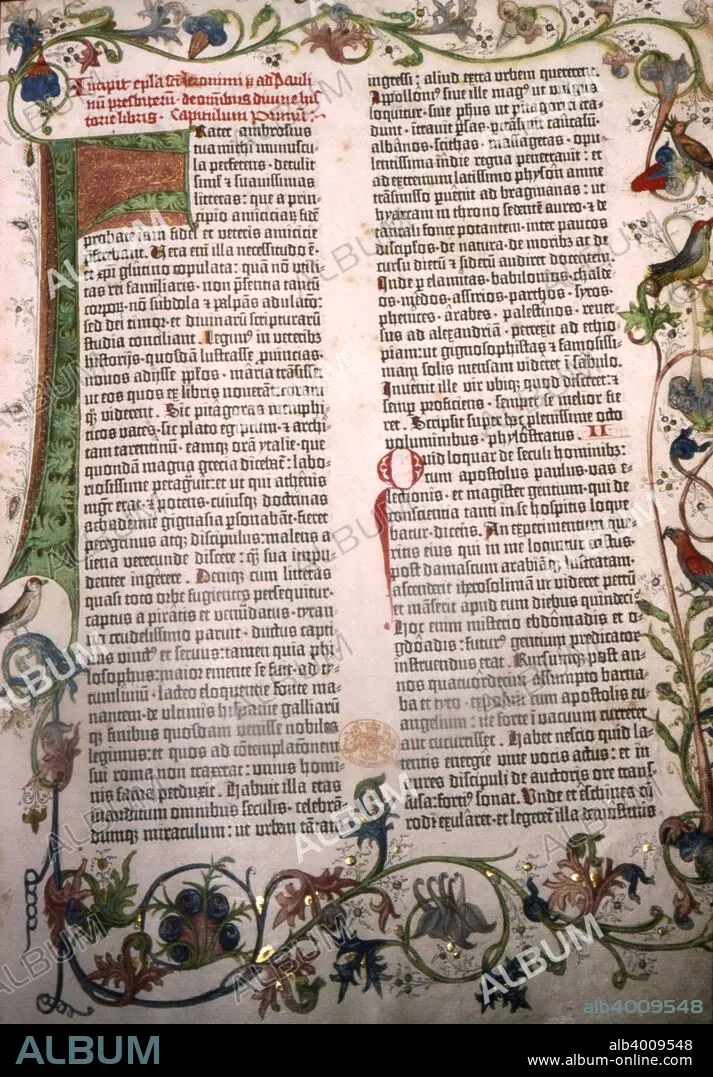 Incipit epla sancti iheronimi ad Pauli-
num presbiterum · de omnibus divine his-
torie libris · Capitulum Primum:
Frater ambrosius
tua michi munuscu-
la perferens · detulit
sim̄l et suavissimas
litteras: que a prin-
cipio amiciciaꝝ fidē
probate iam fidei et veteris amicicie
Vera enī illa necessitudo ē·
et xp̄i glutino copulata: quā nō utili-
tas rei familiaris · nō presentia tantū
corpoꝝ · nō subdola et palpās adulatō:
sed dei timor · et divinarū scripturarū
studia conciliant. Legimꝰ in veteribꝫ
historijs · quosdam lustrasse provincias·
novos adijsse pplos · maria trāsisse:
ut eos quos ex libris noverāt: coram
qꝫ viderent. Sic pitagoras memphi-
ticos vates · sic plato egiptum · et archi-
tam tarentinū · eamqꝫ orā ytalie · que
quondam magna grecia dicebat̄: labo-
riosissime peragravit: et ut qui athenis
mgr̄ erat · et potens · cuiusqꝫ doctrinas
achademie gignasia personabāt · fieret
peregrinus atqꝫ discipulus: malens a-
liena verecunde discere: qꝫ sua impu-
denter ingerere. Deniqꝫ cum litteras
quasi toto orbe fugientes persequitur·
captus a piratis et venūdatus · tyran-
no crudelissimo paruit · ductus capti-
vus vinctꝰ et servus: tamen quia phi-
losophus: maior emente se fuit · ad ty-
tum liviū · lacteo eloquentie fonte ma-
nantem · de ultimis hispanie galliarū
qꝫ finibus quosdam venisse nobiles
legimus: et quos ad cōtemplacōnem
sui roma non traxerat: unius homi-
nis fama perduxit. Habuit illa etas
inauditum omnibus seculis · celebrā-
dumqꝫ miraculum: ut urbem tātam
ingressi: aliud extra urbem quererent.
Appolloniꝰ sive ille magꝰ ut vulgus
loquitur · sive phūs · ut pitagorici tra-
dunt · ītravit persas · ptrāsivit caucasū·
albanos · scithas · massagetas · opu-
lentissima indie regna penetravit: et
ad extremum latissimo physon amne
trāsmisso pervenit ad bragmanas: ut
hyarcam in throno sedentē aureo · et de
tantali fonte potantem · inter paucos
discip̄los · de natura · de moribꝫ ac de
cursu dierū et siderū audiret docentem.
Inde per elamitas · babilonios · chalde-
os · medos · assirios · parthos · syros·
phenices · arabes · palestinos · rever-
sus ad alexandriā · perrexit ad ethio-
piam: ut gignosophistas et famosissi-
mam solis mensam videret ī sabulo.
Invenit ille vir ubiqꝫ quod disceret: et
semper proficiens · semper se melior fie-
ret. Scripsit super hoc plenissime octo
voluminibus · phylostratus. II
Quid loquar de seculi hominibꝫ:
cum apostolus paulus · vas e-
lectionis · et magister gentium · qui de
conscientia tanti in se hospitis loque-
batur · dicens. An experimentum que-
ritis eius qui in me loquitur cristus.
post damascum arabiāqꝫ lustratam·
ascenderit iherosolimā ut videret petrū
et māserit apud eum diebus quindeci.
Hoc enim misterio ebdōmadis et o-
gdōadis: futurꝰ gentium predicator
instruendus erat. Rursumqꝫ post an-
nos quatuordecim assumpto barna-
ba et tyto · exposuit cum apostolis eu-
angelium: ne forte ī vacuum curreret
aut cucurrisset. Habet nescio quid la-
tentis energie · vive vocis actus: et in
aures discipuli de auctoris ore trans-
fusa: fortiꝰ sonat. Unde et eschines cū
rodi exularet · et legeretʳ illa demostenis
ALBUM
alb4009548
ALBUM
alb4009548
www.album-online.com